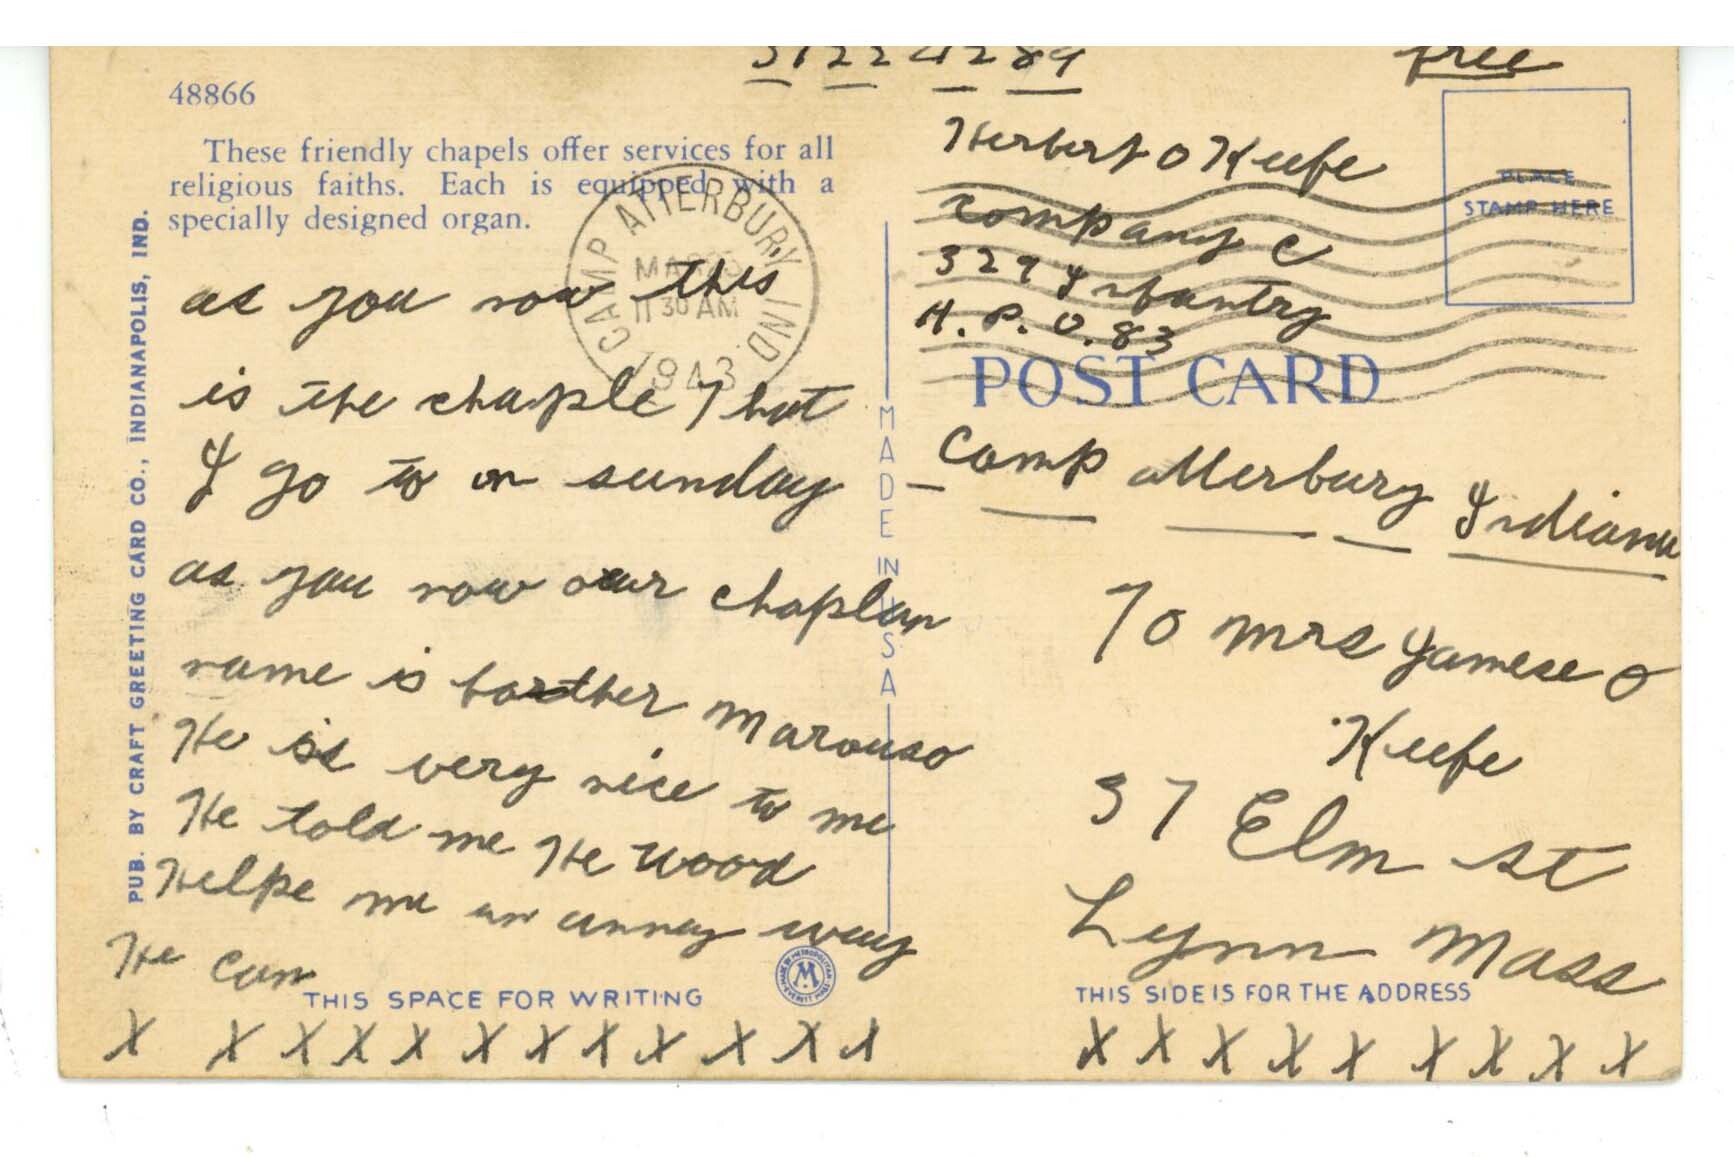 31224289
free
48866
These friendly chapels offer services for all
religious faiths. Each is equipped with a
specially designed organ.
PUB. BY CRAFT GREETING CARD CO., INDIANAPOLIS, IND.
CAMP ATTERBURY, IND.
11 30 AM
1943
as you now this
is the chaple That
I go to on sunday
as you now our chaplan
name is farther Marouso
He is very nice to me
He told me He wood
Helpe me in anney way
He can
THIS SPACE FOR WRITING
X X X X X X X X X X X X
MADE IN U.S.A.
Herbert O Keefe
Company C
329 Infantry
A.P.O. 83
PLACE
STAMP HERE
POST CARD
Camp Atterbury Indiana
To Mrs Jamese O
Keefe
37 Elm St
Lynn Mass
THIS SIDE IS FOR THE ADDRESS
X X X X X X X X X